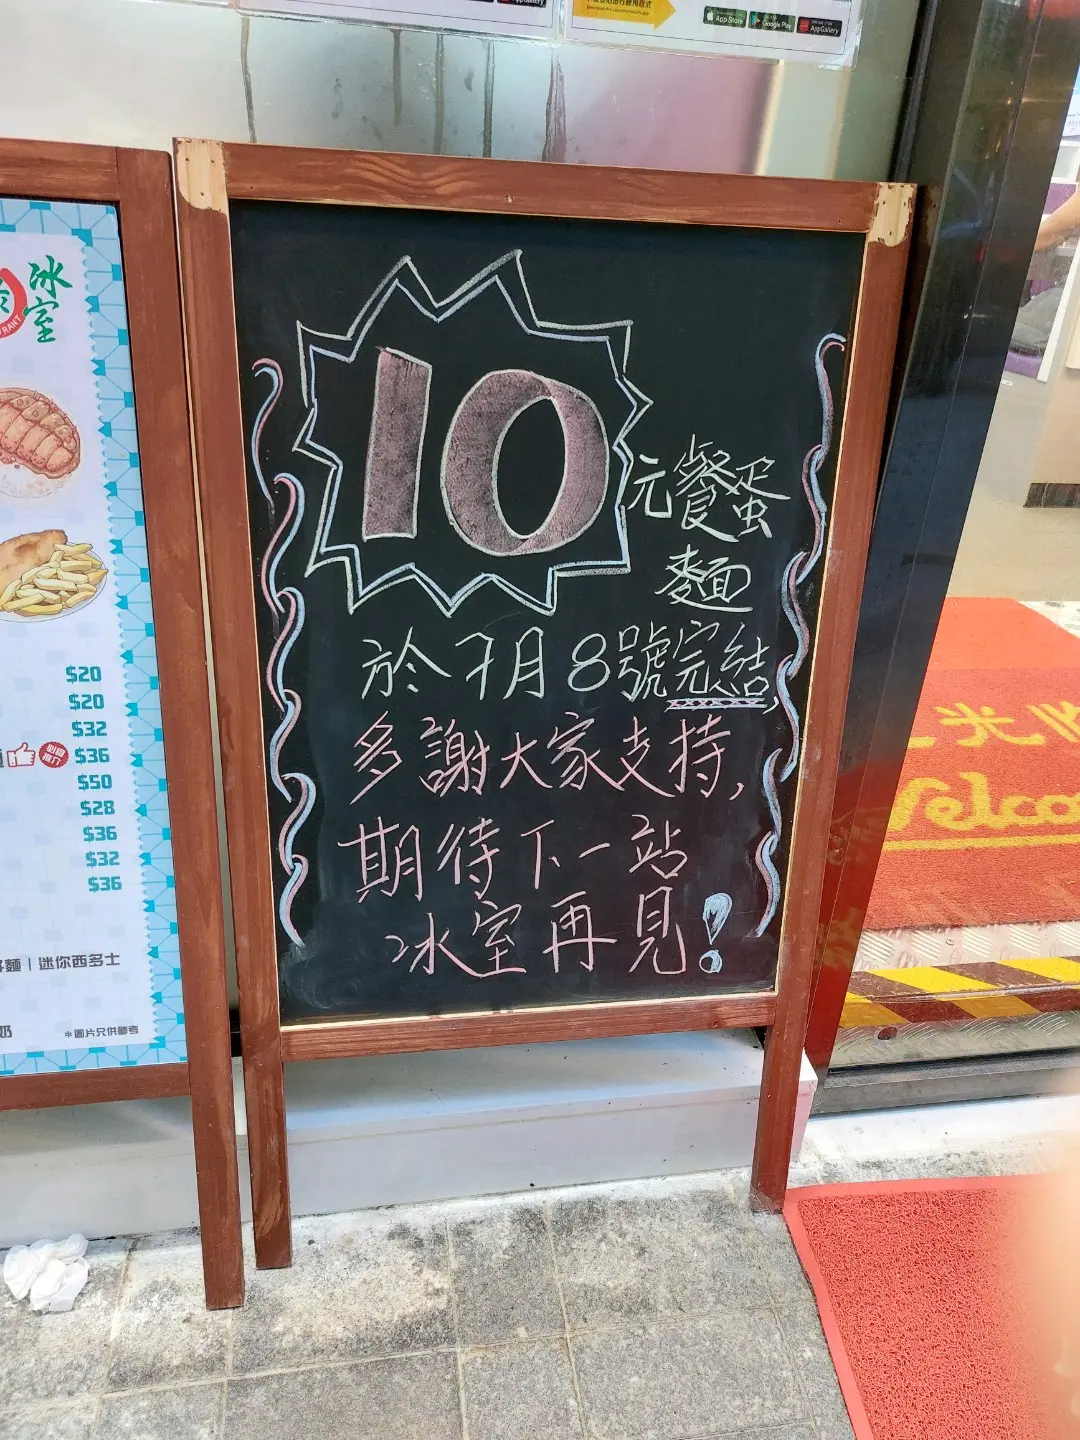 App Store
Google Play
AppGallery
冰室
$20
$20
$32
$36
$50
$28
$36
$32
$36
麵 | 迷你西多士
奶
*圖片只供參考
10
元餐蛋
麵
於7月8號完結,
多謝大家支持,
期待下一站
冰室再見!
光臨
Welco